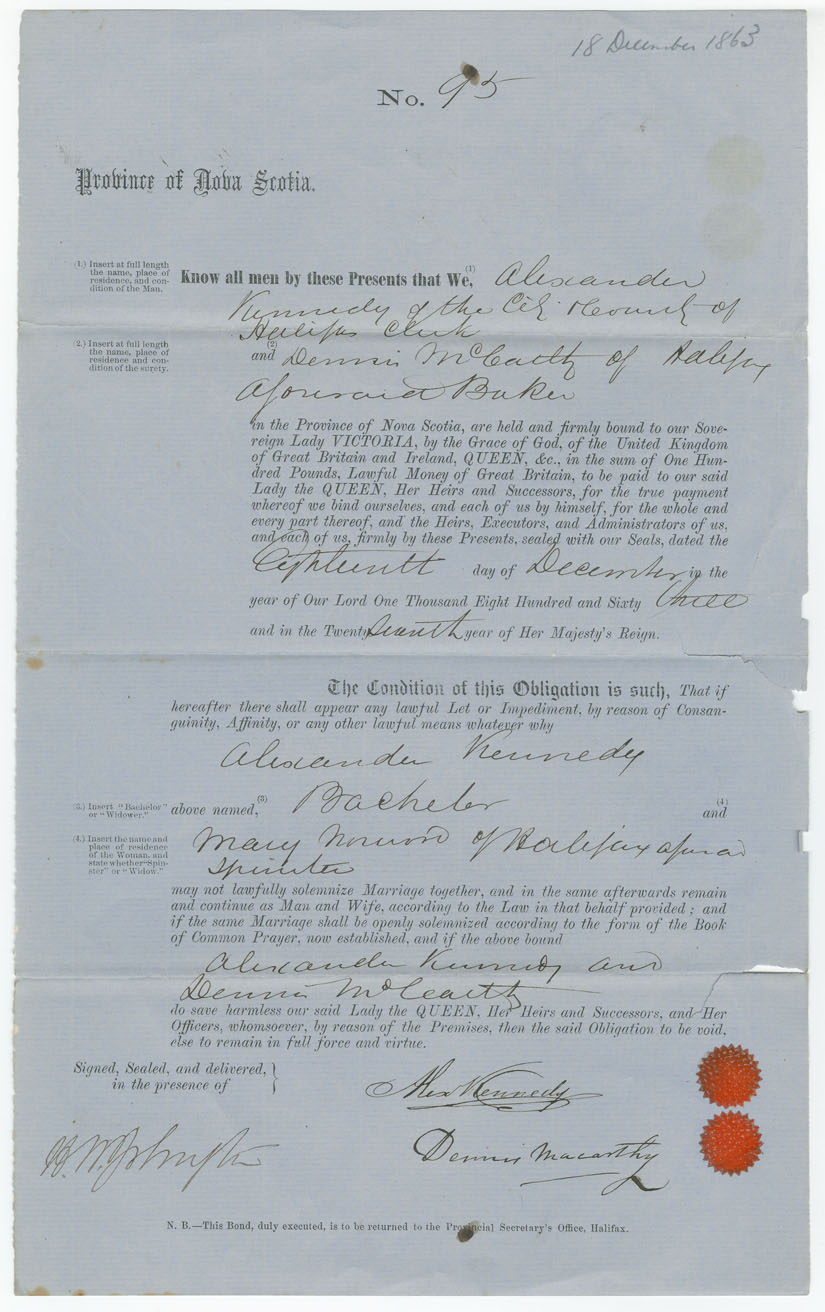 18 December 1863
No. 95
Province of Nova Scotia.
(1.) Insert at full length
the name, place of
residence, and con-
dition of the Man.
Know all men by these Presents that We,(1) Alexander
Kennedy of the City & County of
Halifax Clerk
(2.) Insert at full length
the name, place of
residence and con-
dition of the surety.
and (2) Dennis McCarthy of Halifax
aforesaid Baker
in the Province of Nova Scotia, are held and firmly bound to our Sove-
reign Lady VICTORIA, by the Grace of God, of the United Kingdom
of Great Britain and Ireland, QUEEN, &c., in the sum of One Hun-
dred Pounds, Lawful Money of Great Britain, to be paid to our said
Lady the QUEEN, Her Heirs and Successors, for the true payment
whereof we bind ourselves, and each of us by himself, for the whole and
every part thereof, and the Heirs, Executors, and Administrators of us,
and each of us, firmly by these Presents, sealed with our Seals, dated the
Eighteenth day of December in the
year of Our Lord One Thousand Eight Hundred and Sixty three
and in the Twenty seventh year of Her Majesty's Reign.
The Condition of this Obligation is such, That if
hereafter there shall appear any lawful Let or Impediment, by reason of Consan-
guinity, Affinity, or any other lawful means whatever why
Alexander Kennedy
(3.) Insert "Bachelor"
or "Widower."
above named,(3) Bachelor (4) and
(4.) Insert the name and
place of residence
of the Woman, and
state whether "Spin-
ster" or "Widow."
Mary of Halifax
Spinster
may not lawfully solemnize Marriage together, and in the same afterwards remain
and continue as Man and Wife, according to the Law in that behalf provided; and
if the same Marriage shall be openly solemnized according to the form of the Book
of Common Prayer, now established, and if the above bound
Alexander Kennedy and
Dennis McCarthy
do save harmless our said Lady the QUEEN, Her Heirs and Successors, and Her
Officers, whomsoever, by reason of the Premises, then the said Obligation to be void,
else to remain in full force and virtue.
Signed, Sealed, and delivered,
in the presence of
Alex Kennedy
Dennis Macarthy
N. B.—This Bond, duly executed, is to be returned to the Provincial Secretary's Office, Halifax.